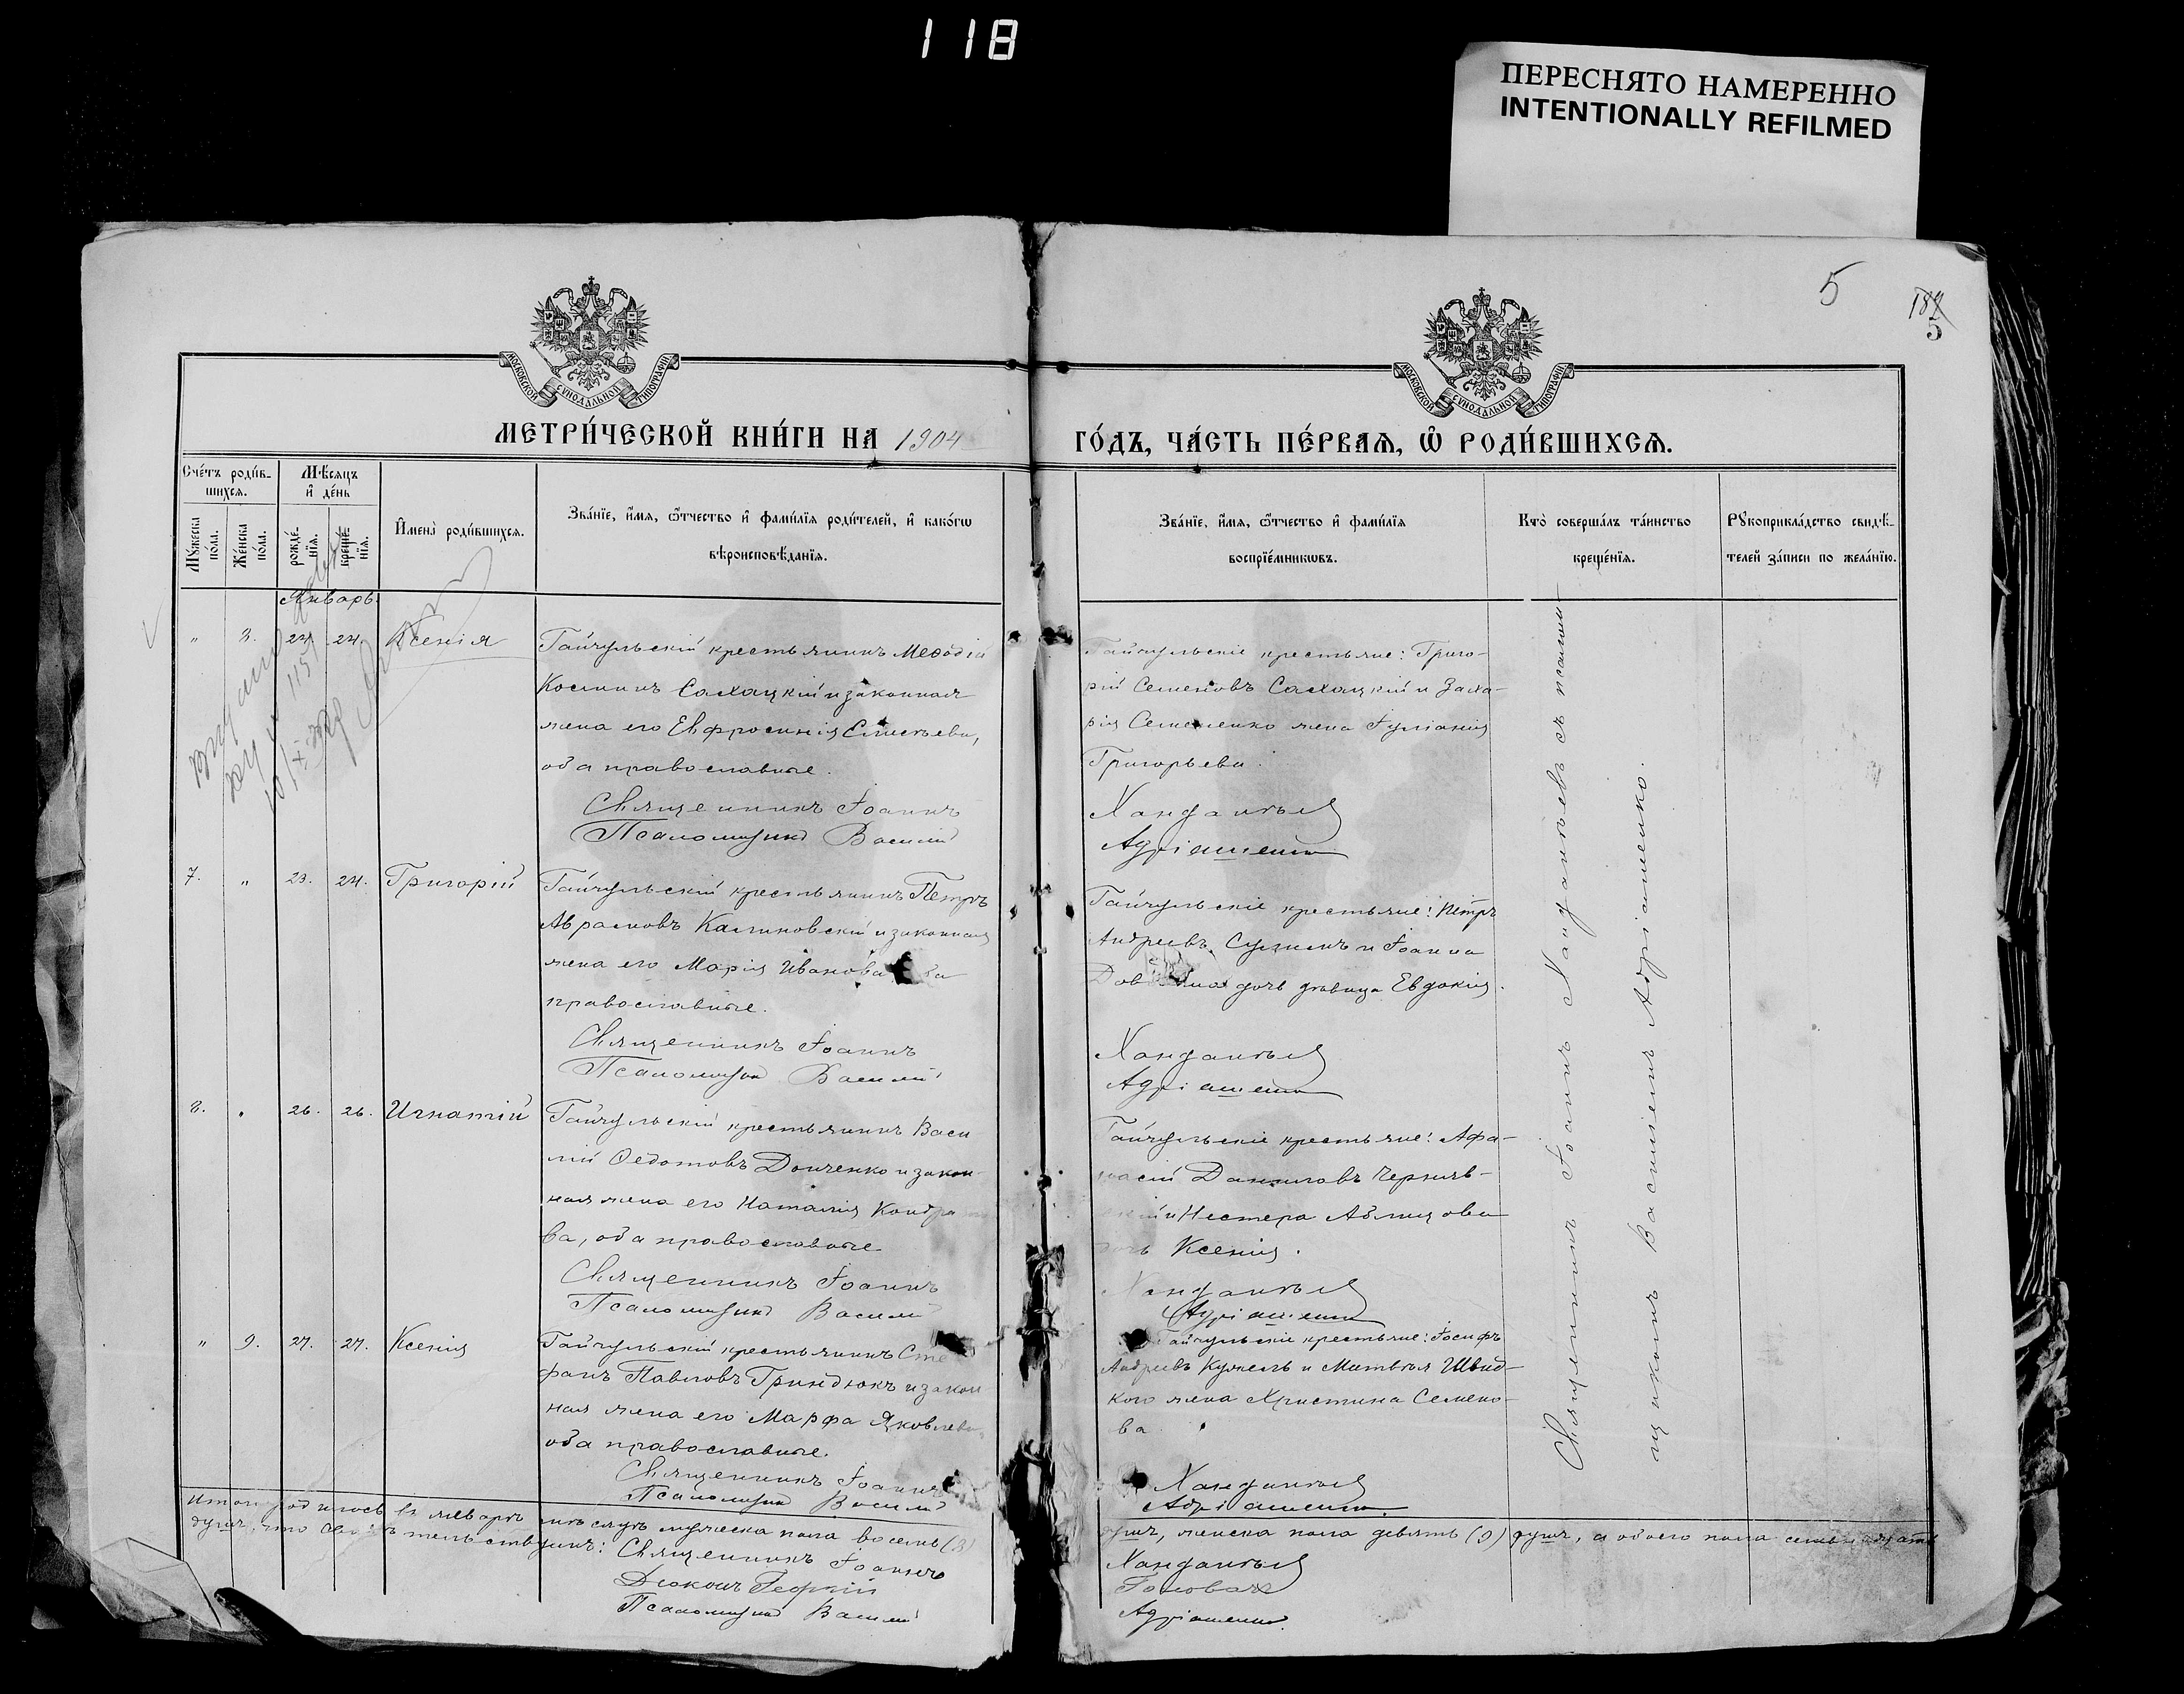 118
ПЕРЕСНЯТО НАМЕРЕННО
INTENTIONALLY REFILMED
5
5
МОСКОВСКОЙ СѴНОДАЛЬНОЙ ТИПОГРАФІИ
МОСКОВСКОЙ СѴНОДАЛЬНОЙ ТИПОГРАФІИ
МЕТРИ́ЧЕСКОЙ КНИ́ГИ НА 1904
ГО́ДЪ, ЧА́СТЬ ПЕ́РВАѦ, Ѽ РОДИ́ВШИХСѦ.
Сче́тъ роди́в-
шихсѧ.
Мѣ́сѧцъ
и҆ де́нь
Мꙋ́жеска
по́ла.
Же́нска
по́ла.
рожде́-
нїѧ.
креще́-
нїѧ.
И҆мена̀ роди́вшихсѧ.
Зва́нїе, и҆́мѧ, ѻ҆́тчество и҆ фами́лїѧ роди́телей, и҆ како́гѡ
вѣроисповѣ́данїѧ.
Зва́нїе, и҆́мѧ, ѻ҆́тчество и҆ фами́лїѧ
воспрїе́мникѡвъ.
Кто̀ соверша́лъ та́инство
креще́нїѧ.
Рꙋкоприкла́дство свидѣ́-
телей за́писи по жела́нїю.
Январь.
" 8. 24. 24. Ксенія
Гайчульскій крестьянинъ Меѳодій
Косминъ Сахацкій и законная
жена его Евфросинія Елисѣева,
оба православные.
Священникъ Іоаннъ
Псаломщикъ Василій
Гайчульскіе крестьяне: Григо-
рій Семеновъ Сахацкій и Заха-
рія Семененко жена Іуліанія
Григорьева.
Ханданѣев
Адріашенко
7. " 23. 24. Григорій
Гайчульскій крестьянинъ Петръ
Аврамовъ Калиновскій и законная
жена его Марія Иванова
православные.
Священникъ Іоаннъ
Псаломщикъ Василій
Гайчульскіе крестьяне: Петръ
Андреевъ и Іоанна
дочь дѣвица Евдокія.
Ханданѣев
Адріашенко
8. " 26. 26. Игнатій
Гайчульскій крестьянинъ Васи
лій Ѳедотовъ Донченко и закон-
ная жена его Наталія
ва, оба православные
Священникъ Іоаннъ
Псаломщикъ Василій
Гайчульскіе крестьяне: Афа-
насій Даниловъ Черняв-
скій и Нестера
дочь Ксенія.
Ханданѣев
Адріашенко
" 9. 27. 27. Ксенія
Гайчульскій крестьянинъ Сте
фанъ Павловъ Гриндюкъ и закон
ная жена его Марфа Яковлева,
оба православные.
Священникъ Іоаннъ
Псаломщикъ Василій
Гайчульскіе крестьяне: Іосифъ
Андреевъ Кужель и Матвѣя Швид-
кого жена Христина Семено-
ва
Ханданѣев
Адріашенко
Священникъ Іоаннъ Ханданѣевъ съ псалом-
щикомъ Василіемъ Адріашенко.
Итого родилось въ январѣ мѣсяцѣ мужеска пола восемь (8)
душъ, женска пола девять (9) душъ, а обоего пола семнадцать
душъ, что свидѣтельствуемъ: Священникъ Іоаннъ
Ханданѣев
Діаконъ Георгій
Головач
Псаломщикъ Василій
Адріашенко.